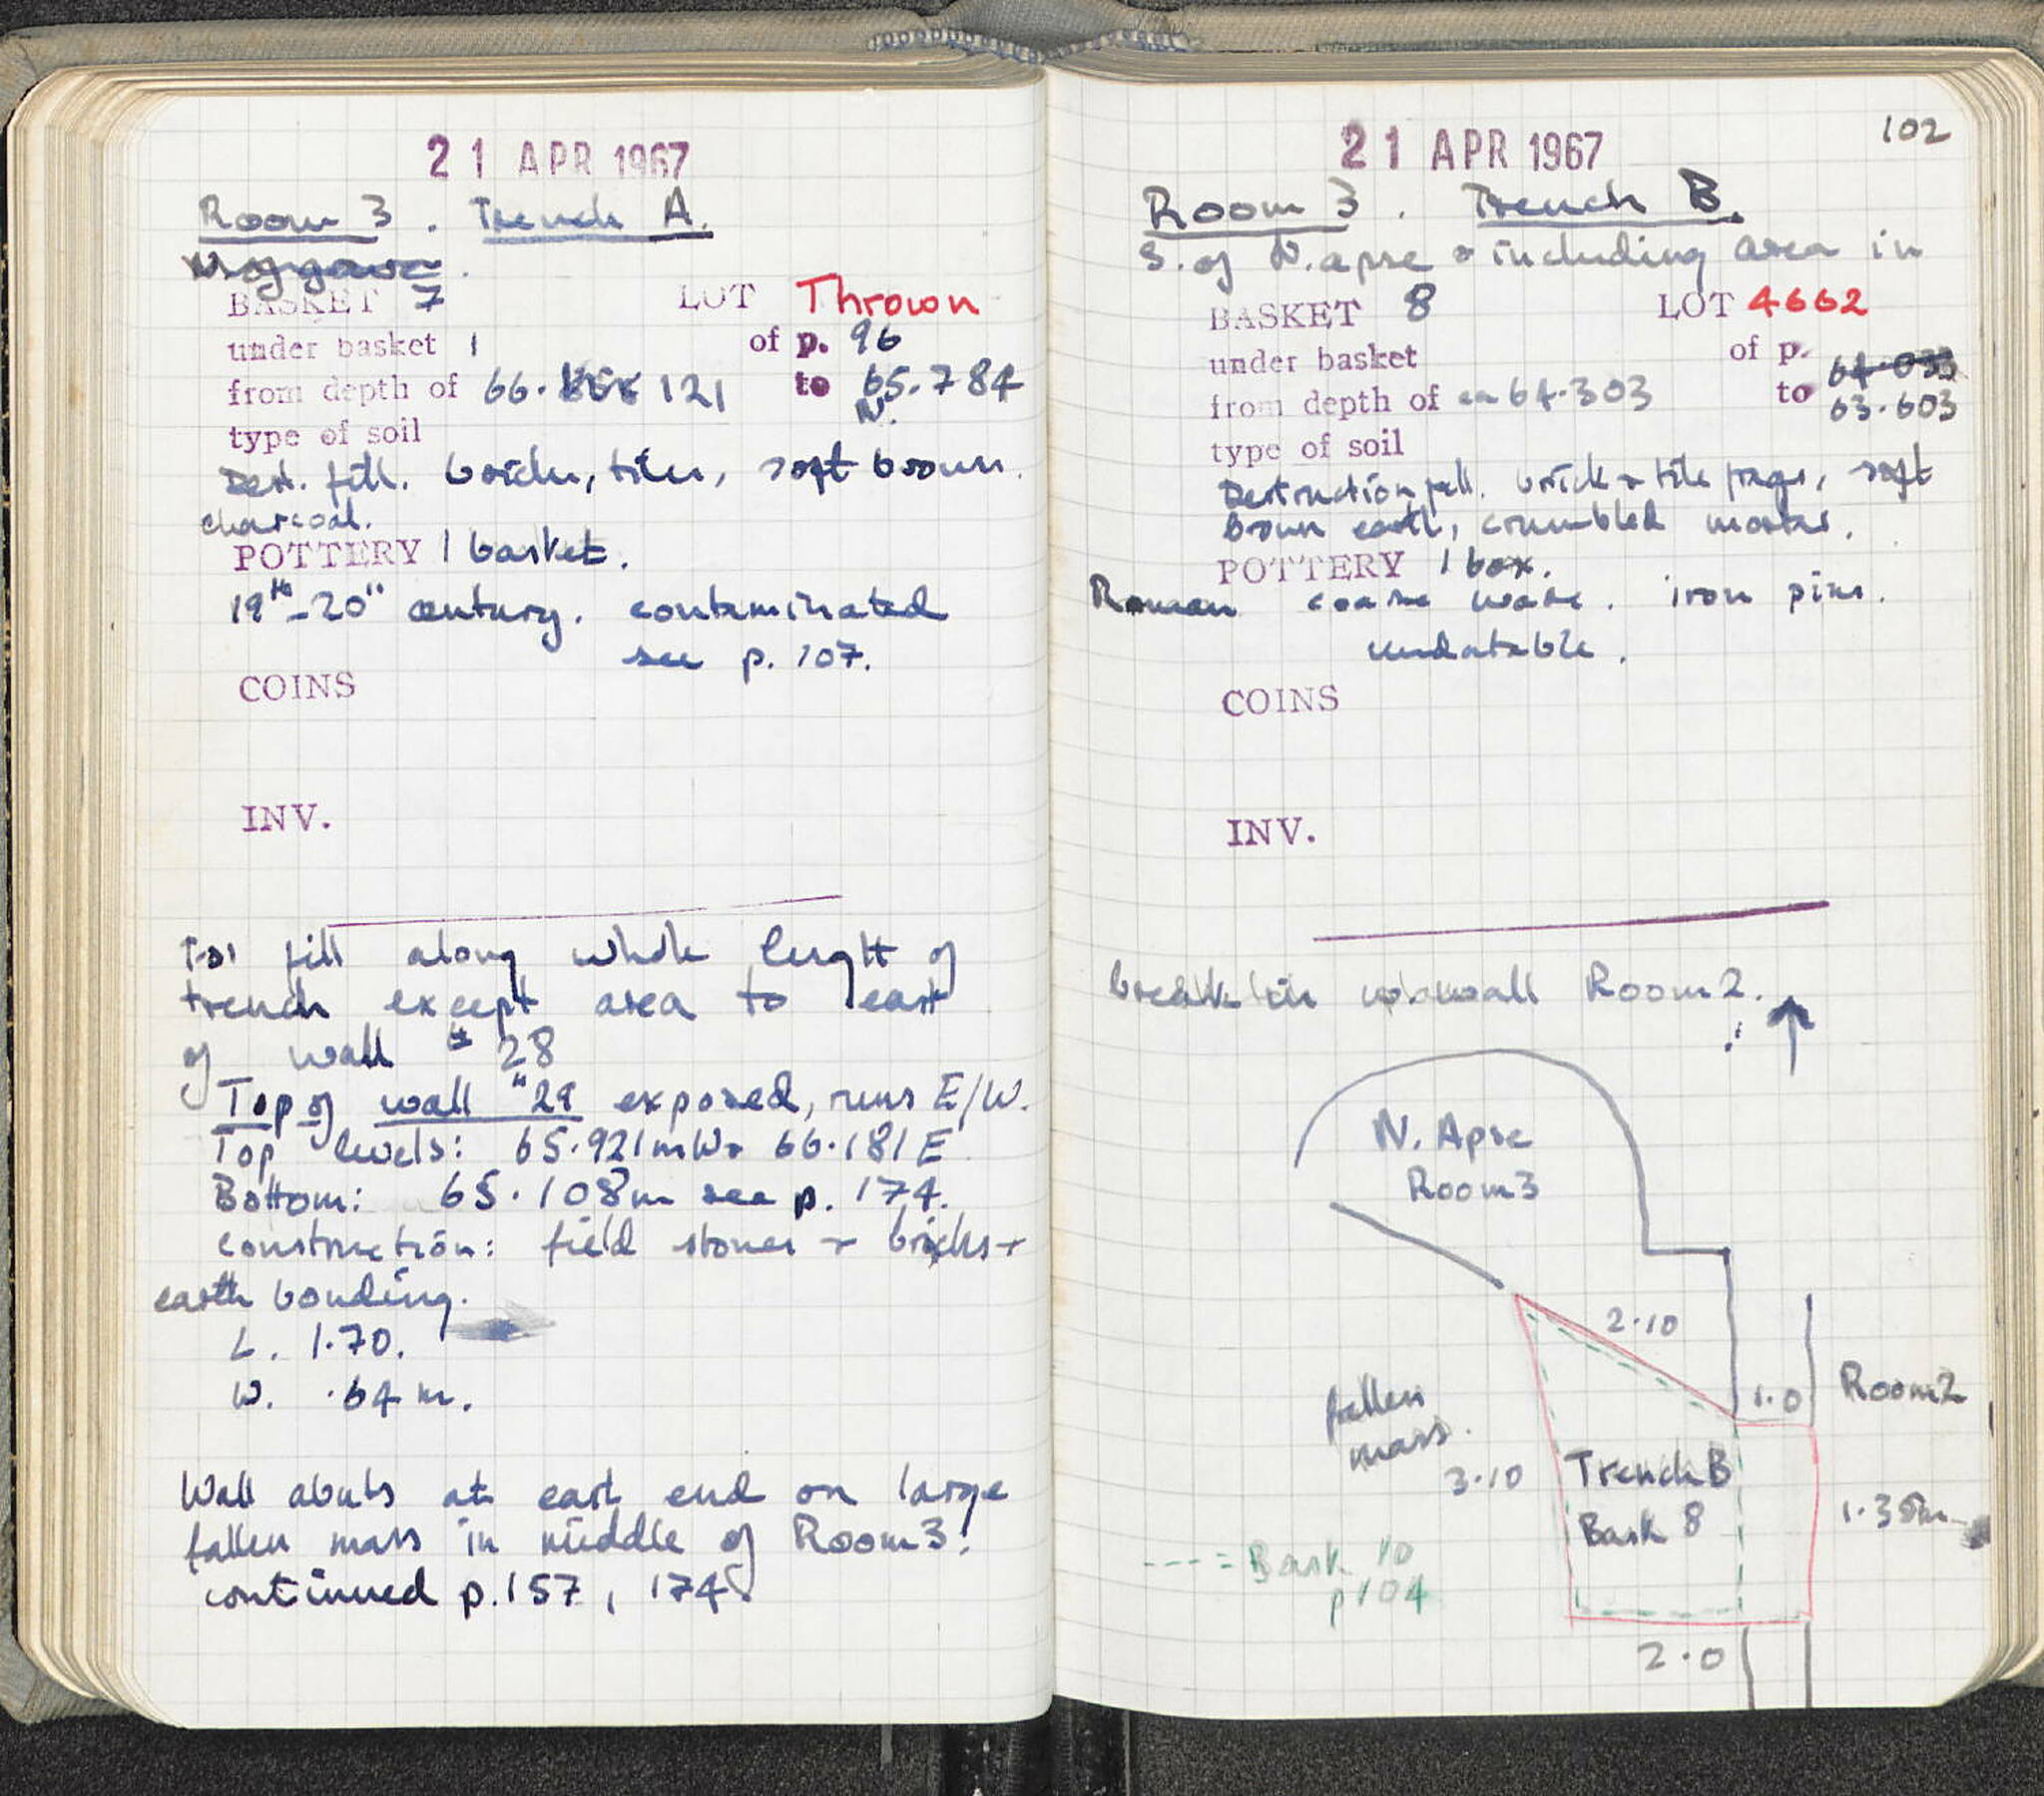 21 APR 1967
Room 3. Trench A.
BASKET 7 LOT Thrown
under basket 1 of p. 96
from depth of 66. 121 to 65.784
W.
type of soil
Dest. fill. bricks, tiles, soft brown.
charcoal.
POTTERY 1 basket.
19th-20" century. contaminated
see p. 107.
COINS
INV.
fill along whole lenght of
trench except area to east
of wall # 28
Top of wall "29 exposed, runs E/W.
Top levels: 65.921mW+ 66.181E
Bottom: 65.108m see p. 174.
construction: field stones + bricks +
earth bonding.
L. 1.70.
W. .64m.
Wall abuts at east end on large
fallen mass in middle of Room 3.
continued p.157, 174.
102
21 APR 1967
Room 3. Trench B.
S. of N. apse + including area in
BASKET 8 LOT 4662
under basket of p.
from depth of ca 64.303 to 64.033
63.603
type of soil
Destruction fill. brick + tile frags, soft
brown earth, crumbled mortar.
POTTERY 1 box.
Roman coarse ware. iron pins.
undatable.
COINS
INV.
break in wall Room 2.
N. Apse
Room 3
2.10
1.0
Room 2
fallen
mass.
3.10
Trench B
Bask 8
1.35m
---- = Bask 10
p104
2.0